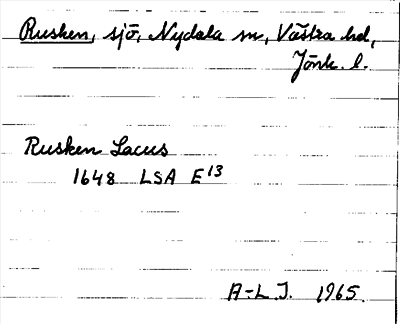 Rusken, sjö, Nydala sn, Västra hd,
Jönk. l.
Rusken Lacus
1648 LSA E¹³
A-L.J. 1965.